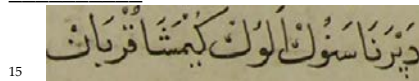 دَيْرَنَا سَنُوْكْ اَلوُكْ كَيْمَشَا قُرْبَانْ
15